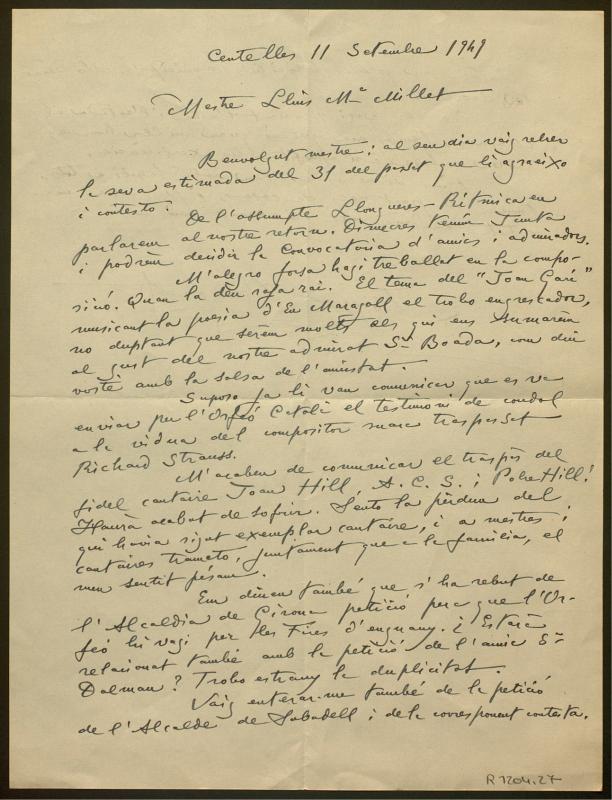 Centelles 11 Setembre 1949
Mestre Lluis Mª Millet
Benvolgut mestre: al seu dia vaig rebre
la seva estimada del 31 del passat que li agraeixo
i contesto.
De l'assumpte Llongueres-Rítmica en
parlarem al nostre retorn. Dimecres tenim Junta
i podrem decidir la Convocatoria d'amics i admiradors.
M'alegro forsa hagi treballat en la compo-
sició. Quan la deu rai. El tema del "Joan Garí"
musicant la poesia d'En Maragall el trobo engrescador,
no duptant que serèm molts els qui ens sumarèm
al gust del nostre admirat Sr Boada, com diu
vostè amb la salsa de l'amistat.
Suposo ja li van comunicar que es va
enviar per l'Orfeó Català el testimoni de condol
a la vidua del compositor suara traspassat
Richard Strauss.
M'acaben de comunicar el traspàs del
fidel cantaire Joan Hill, A.C.S. i Pobre Hill!
Haurà acabat de sofrir. Sento la pèrdua del
qui havia sigut exemplar cantaire, i a mestres i
cantaires trameto, juntament que a la familia, el
meu sentit pésam.
Em diuen també que s'ha rebut de
l'Alcaldia de Girona petició per a que l'Or-
feó hi vagi per les Fires d'enguany. ¿Estarà
relacionat també amb la petició de l'amic Sr
Dalmau? Trobo estrany la duplicitat.
Vaig enterar-me també de la petició
de l'Alcalde de Sabadell i de la corresponent contesta.
R 1204.27